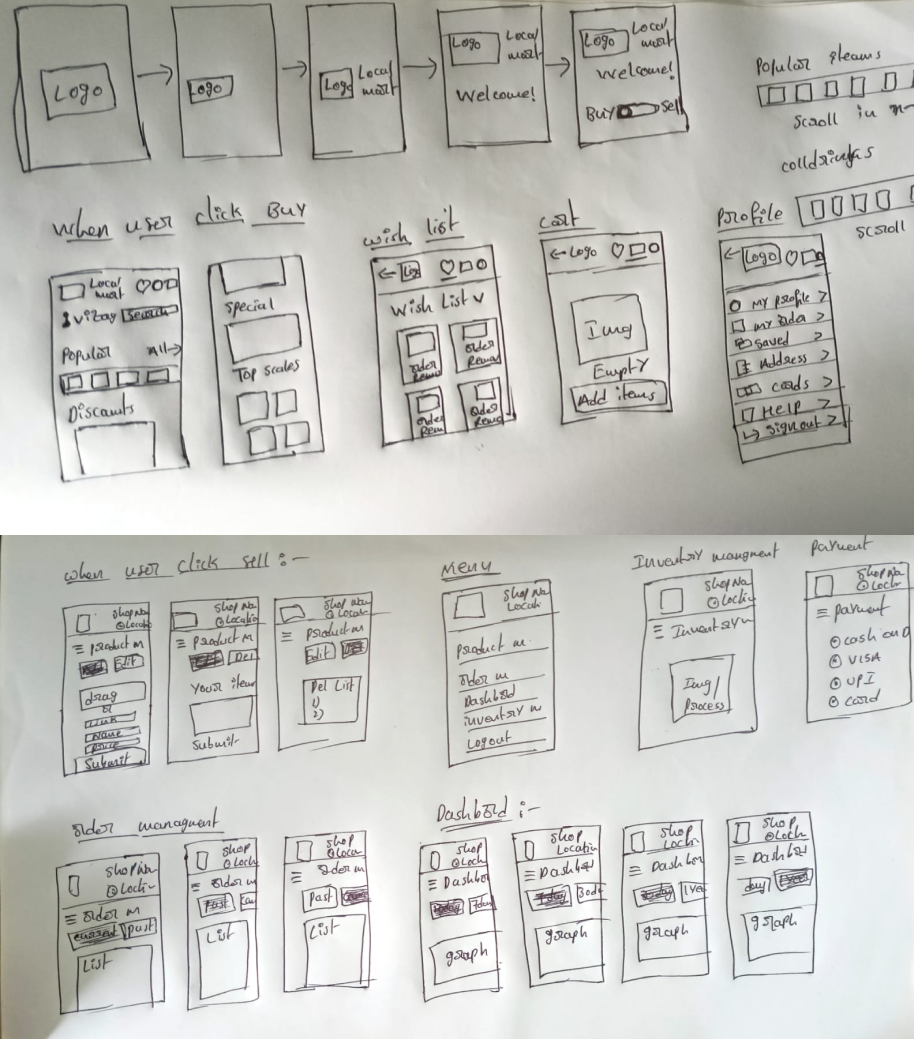 Logo
Logo
Logo
Local
mart
Logo
Local
mart
Welcome!
Logo
Local
mart
Welcome!
Buy
Sell
Popular
scroll in
scroll
When user click Buy
Local
mart
Vijay
Search
Popular
All→
Discounts
Special
Top Scales
wish list
Wish List v
order
order
order
Order
cart
←Logo
Img
Empty
Add items
Profile
←
Logo
My profile >
my order >
saved >
Address >
cards >
Help >
Sign out >
When user click sell :-
Shop Na
Locatio
Product m
Edit
drag
or
Link
Name
Price
Submit
Shop Na
Locatio
Product m
Del
Your item
Submit
Shop Nam
Locat
Product m
Edit
Del List
1)
2)
Menu
Shop Na
Locati
Product m.
Order m
Dashbord
inventory m
Logout
Inventory managment
Shop Na
Locti
Inventory m
Img/
Process
Payment
Shop Na
Loch
payment
cash on D
VISA
UPI
Card
Order managment
Shop Na
Locti
Order m
current
Past
List
Shop
Loch
Order m
Past
List
Shop
Loca
Order m
Past
List
Dashbord :-
Shop
Loch
Dashbor
graph
Shop
Locatio
Dashbor
graph
Shop
Loch
Dashbor
graph
Shop
Loch
Dashbor
day
graph